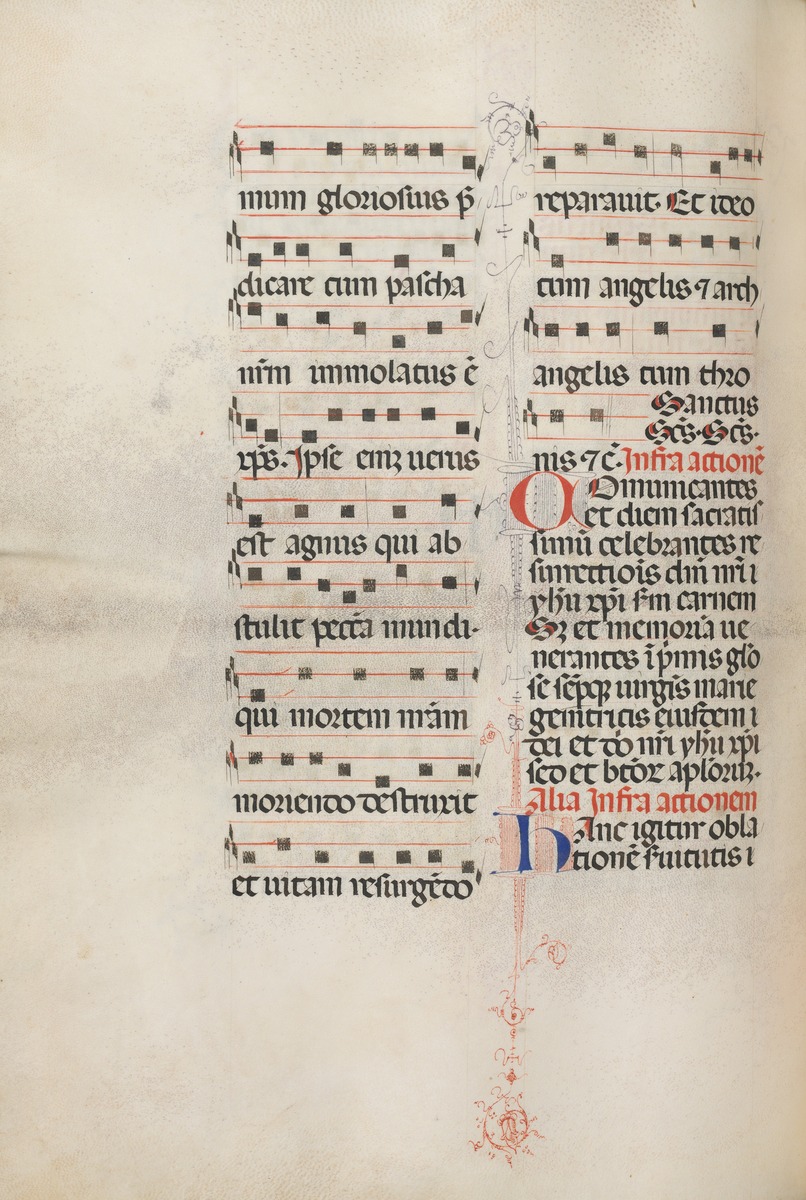 mum gloriosius p̄
dicare cum pascha
nr̄m immolatus ē
xp̄s. Ipse eniꝫ uerus
est agnus qui ab
stulit pecc̄a mundi.
qui mortem nr̄am
moriendo destruxit
et uitam resurgēdo
reparauit. Et ideo
cum angelis ⁊ arch
angelis cum thro
Sanctus
Sc̄s. Sc̄s.
nis ⁊ c̄. Infra actionē
COmunicantes
et diem sacratis
simū celebrantes re
surrectiōis dn̄i nr̄i i
yh̄u xp̄i s̄m carnem
Sꝫ et memoriā ue
nerantes ī p̄mis glō
se sēpqꝫ uirgīs marie
genitricis eiusdem
dei et dō nr̄i yh̄u xp̄i
sed et btōꝝ apl̄oꝝ.
Alia Infra actionem
HAnc igitur obla
tionē s̄uitutis